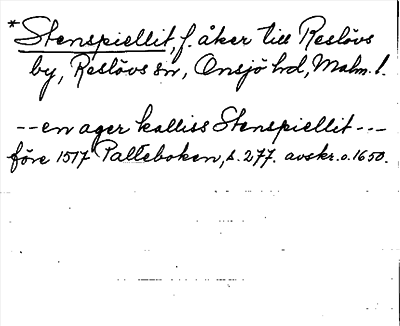 *Stenspiellit, f. åker till Reslövs
by, Reslövs sn, Onsjö hd, Malm. l.
--en ager kalliss Stenspiellit---
före 1517 Palteboken, s. 277. avskr. o. 1650.